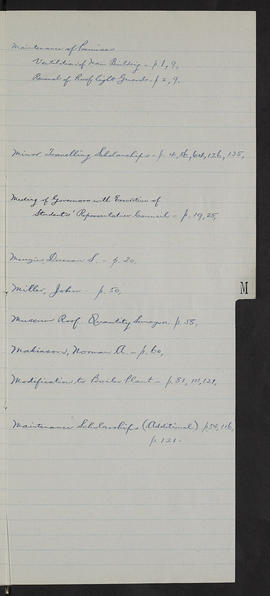 Maintenance of Premises
Ventilation of Main Building - p.1, 9.
Removal of Rooflight Guards - p.2, 9.
Minor Travelling Scholarships - p. 4, 16, 64, 126, 135,
Meeting of Governors with Executive of
Students' Representative Council - p. 19, 25,
Menzies, Duncan S. - p. 20,
Miller, John - p. 50,
M
Museum Roof Quantity Surveyor p. 55,
Makinson, Norman A. - p. 60,
Modification to Boiler Plant - p. 81, 111, 121,
Maintenance Scholarships (Additional) p. 54, 116,
p. 121.